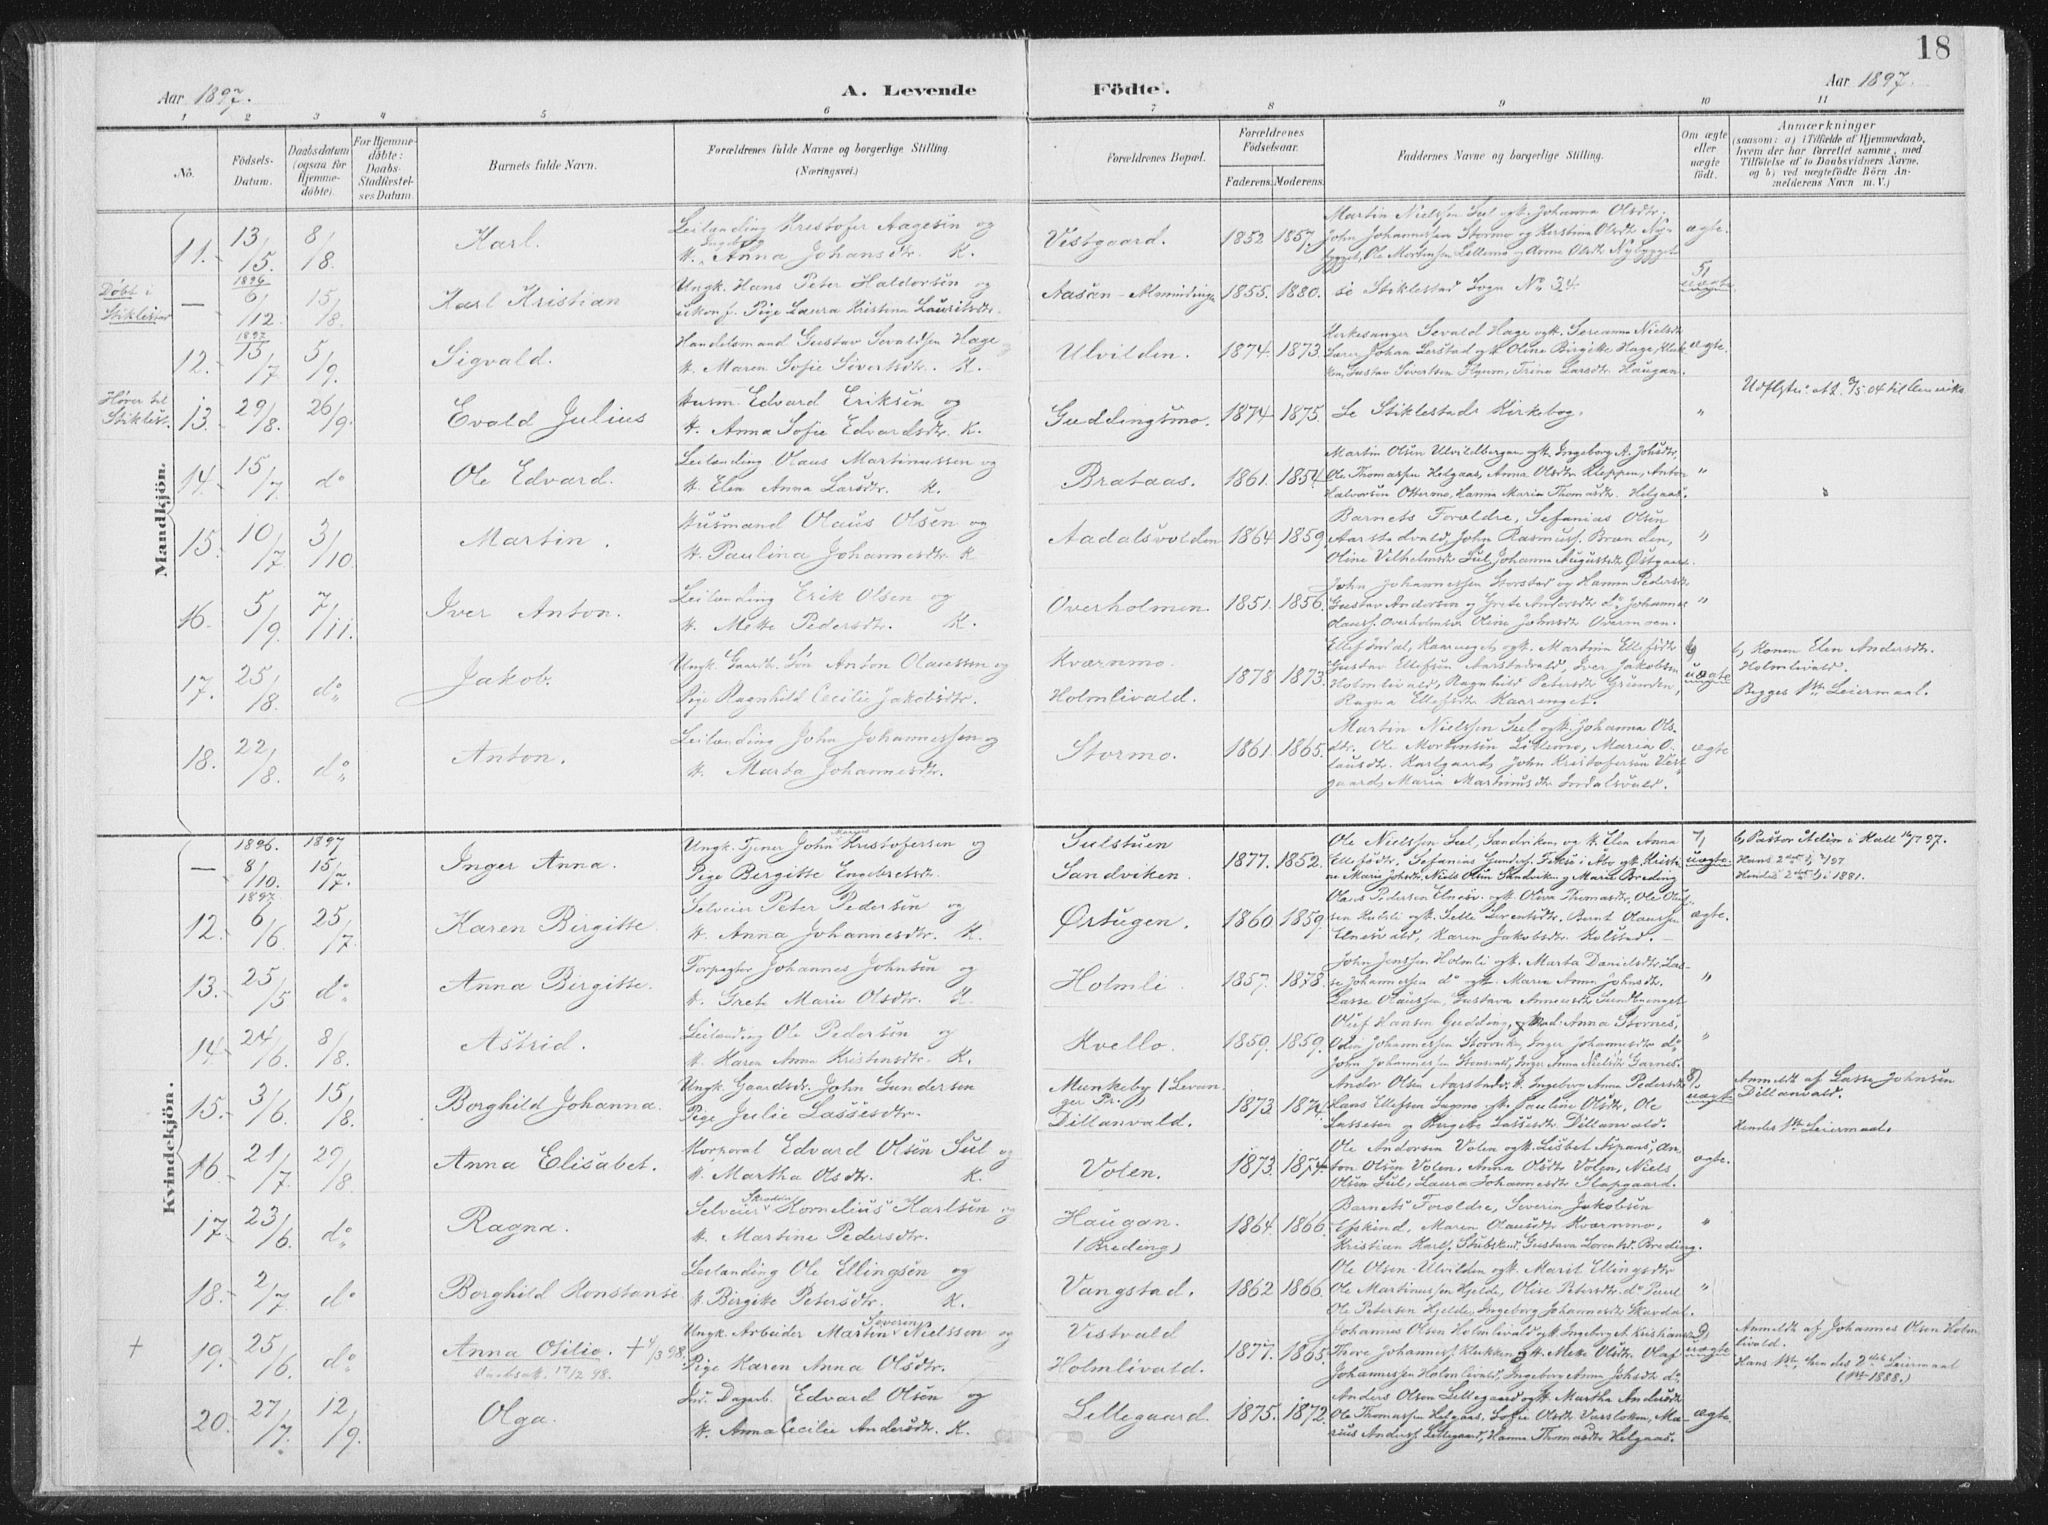 18
Aar 1897.
A. Levende
Födte.
Aar 1897.
1 2 3 4 5 6 7 8 9 10 11
No.
Födsels-Datum.
Daabsdatum (ogsaa for Hjemmedøbte).
For Hjemmedøbte: Daabs-Stadfæstelses Datum.
Barnets fulde Navn.
Forældrenes fulde Navne og borgerlige Stilling.
(Næringsvei.)
Forældrenes Bopæl.
Forældrenes Födselsaar.
Faderens. Moderens.
Faddernes Navne og borgerlige Stilling.
Om ægte eller uægte födt.
Anmærkninger
(saasom: a) i Tilfælde af Hjemmedaab, hvem der har forrettet samme, med Tilföielse af to Daabsvidners Navne, og b) ved uægtefödte Börn Anmelderens Navn m. V.)
Mandkjön.
11. 13/5. 8/8. Karl. Leilænding Kristofer Aagesen og
H. Ingeborg Anna Johansdtr. K. Vestgaard. 1852 1857.
Martin Nielssen Sul og H. Johanna Olsdtr.
John Johannessen Stormo og Kerstina Olsdtr Ny-
bygget, Ole Mortensen Lillemo og Anne Olsdtr Nybygget ægte.
Døbt i Stiklestad
— 1896 6/12. 15/8. Karl Kristian Ungk. Hans Peter Haldorsen og
ukonf. Pige Laura Kristina Lauritsdtr. Aasan - Almindinga 1855. 1880. se Stiklestad Sogn No 34 5, uægte
12. 1897 13/7 5/9. Sigvald. Handelsmand Gustav Sevaldsen Hage
H. Maren Sofie Sivertsdtr. K. Ulvilden. 1874. 1873.
Kirkesanger Sevald Hage og H. Sereanna Nielsdtr
Lærer Johan Lerstad og H. Oline Birgitte Hage, Kluk-
ken, Gustav Sivertsen Flyum, Trina Larsdtr. Haugan. ægte.
Hører til Stiklest.
13. 29/8. 26/9. Evald Julius Husm. Edvard Eriksen og
H. Anna Sofie Edvardsdtr. K. Guddingsmo. 1874 1875. Se Stiklestads Kirkebog. "
Udflytn. att. 3/5 04 til Amerika
14. 15/7. do Ole Edvard. Leilænding Olaus Martinussen og
H. Elen Anna Larsdtr. K. Brataas. 1861. 1854
Martin Olsen Ulvildbergan og H. Ingeborg A. Johsdtr.
Ole Thomassen Helgaas, Anna Olsdtr Kleppen, Anton
Halvorsen Ottermo, Hanna Maria Thomasdtr. Helgaas. "
15. 10/7. 3/10 Martin. Husmand Olaus Olsen og
H. Paulina Johannesdtr. K Aadalsvolden 1864 1859.
Barnets Forældre, Sefanias Olsen
Aarstadvald, John Rasmuss. Brænden,
Oline Vilhelmsdtr Sul, Johanna Augustdtr Østgaard. "
16. 5/9. 7/11. Iver Anton. Leilænding Erik Olsen og
H. Mette Pedersdtr. K. Overholmen. 1851. 1856.
John Johannessen Storstad og Hanna Pedersdtr
Gustav Andersen og Grete Andersdtr do, Johannes
Olauss. Overholmen Oline Johnsdtr Overmoen. "
17. 25/8. do Jakob. Ungk. Gaardbr. Søn Anton Olaussen og
Pige Ragnhild Cecilie Jakobsdtr. Kværnmo.
Holmlivald. 1878 1873.
Ellef Indal, Kaarenget og H. Martina Ellefsdtr
Gustav Ellefsen Aarstadvald, Iver Jakobsen
Holmlivald, Ragnhild Petersdtr Grunden,
Ragna Ellefsdtr Kaarenget. 6, uægte
b, Konen Elen Andersdtr.
Holmlivald.
Begges 1ste Leiermaal.
18. 22/8. do Anton. Leilænding John Johannessen og
H. Marta Johannesdtr. Stormo. 1861. 1865.
Martin Nielssen Sul og H. Johanna Ols-
dtr. Ole Mortensen Lillemo, Maria O-
lausdtr. Karlgaard, John Kristofersen Vest-
gaard, Maria Martinusdtr Indalsvald. ægte
Kvindekjön.
— 1896. 8/10. 1897 15/7. Inger Anna. Ungk. Tjener John Kristofersen og
Pige Birgitte Engebretsdtr. Sulstuen
Sandviken. 1877. 1852.
Ole Nielssen Sul, Sandviken, og H. Elen Anna
Ellefsdtr, Sefanias Gunders. Fæksi i Abo og H. Kristi-
ne Marie Johsdtr, Niels Olsen Sandviken og Marie Breding 7, uægte.
b, Pastor Adim i Kall 16/7 97.
12. 1897. 6/6 25/7. Karen Birgitte. Selveier Peter Pedersen og
H. Anna Johannesdtr. K. Ørtugen. 1860 1859. ægte.
13. 25/5 do Anna Birgitte. Forpagter Johannes Johnsen og
H. Grete Marie Olsdtr. K. Holmli. 1857. 1878.
John Jenssen Holmli og H. Marta Danielsdtr. Las-
se Johannessen do og H. Maren Anna Johnsdtr.
Lasse Olaussen, Gustava Annensdtr Sundbyenget "
14. 24/6. 8/8. Astrid. Leilænding Ole Pedersen og
H. Karen Anna Kristensdtr. K. Kvello. 1859. 1859.
Oluf Hansen Gudding, og Mad. Anna Stornes,
Odin Johannessen Storvuku, Inger Johannesdtr do "
15. 3/6. 15/8. Borghild Johanna. Ungk. Gaardsdr. John Gundersen
Pige Julie Lassesdtr. Munkeby (Levan-
ger Pr.)
Dillanvald. 1873. 1874.
Andor Olsen Aarstadv. H. Ingeborg Anna Pedersdtr
Hans Ellefsen Sagmo og H. Pauline Olsdtr, Ole
Lassesen og Birgitte Lassesdtr. Dillanvald. 8, uægte
Anmeldt af Lasse Johnsen
Dillanvald.
Hendes 1ste Leiermaal.
16. 21/7. 29/8. Anna Elisabet. Korporal Edvard Olsen Sul og
H. Martha Olsdtr. K. Volen. 1873. 1874.
Ole Andorsen Volen og H. Lisbet Aspaas, An-
ton Olsen Volen, Anna Olsdtr Volen, Niels
Olsen Sul, Laura Johannesdtr Slapgaard. ægte.
17. 23/6. do Ragna. Selveier Skrædder Kornelius Karlsen og
H. Martine Pedersdtr. Haugan.
(Breding) 1864. 1866.
Barnets Forældre, Severin Jakobsen
Efskind, Maren Olausdtr Kværnmo,
Kristian Karls. Stubskind, Gustava Lorentsd. Breding. "
18. 2/7. do Borghild Konstanse Leilænding Ole Ellingsen og
H. Birgitte Petersdtr. K. Vangstad. 1862 1866.
Ole Olsen Ulvilden og H. Marit Ellingsdtr
Ole Martinussen Hjelde, Olise Petersdtr. do Paul
Ole Petersen Hjelde, Ingeborg Johannesdtr Skavdal. "
+ 19. 25/6. do Anna Otilie. + 4/3 98. Ungk. Arbeider Martin Severin Nielssen og
Pige Karen Anna Olsdtr. Vestvald
Holmlivald. 1877. 1865.
Johannes Olsen Holmlivald og H. Ingeborg A. Kristiansd.
Thore Johanness. Klukken og H. Mette Olsdtr. Olaf
Johannessen Holmlivald, Ingeborg Anna Johsdtr do 9, uægte
Anmeldt af Johannes Olsen Holm-
livald.
Hans 1ste, hendes 2det Leiermaal
(1ste 1888.)
20. 27/7. 12/9. Olga. Ind. Dagarb. Edvard Olsen og
H. Anna Cecilie Andersdtr. K. Lillegaard. 1875. 1872.
Anders Olsen Lillegaard og H. Martha Andersdtr
Ole Thomassen Helgaas, Sofie Olsdtr Varsloken, Ma-
rius Anderss. Lillegaard, Hanna Thomasdtr Helgaas. ægte.